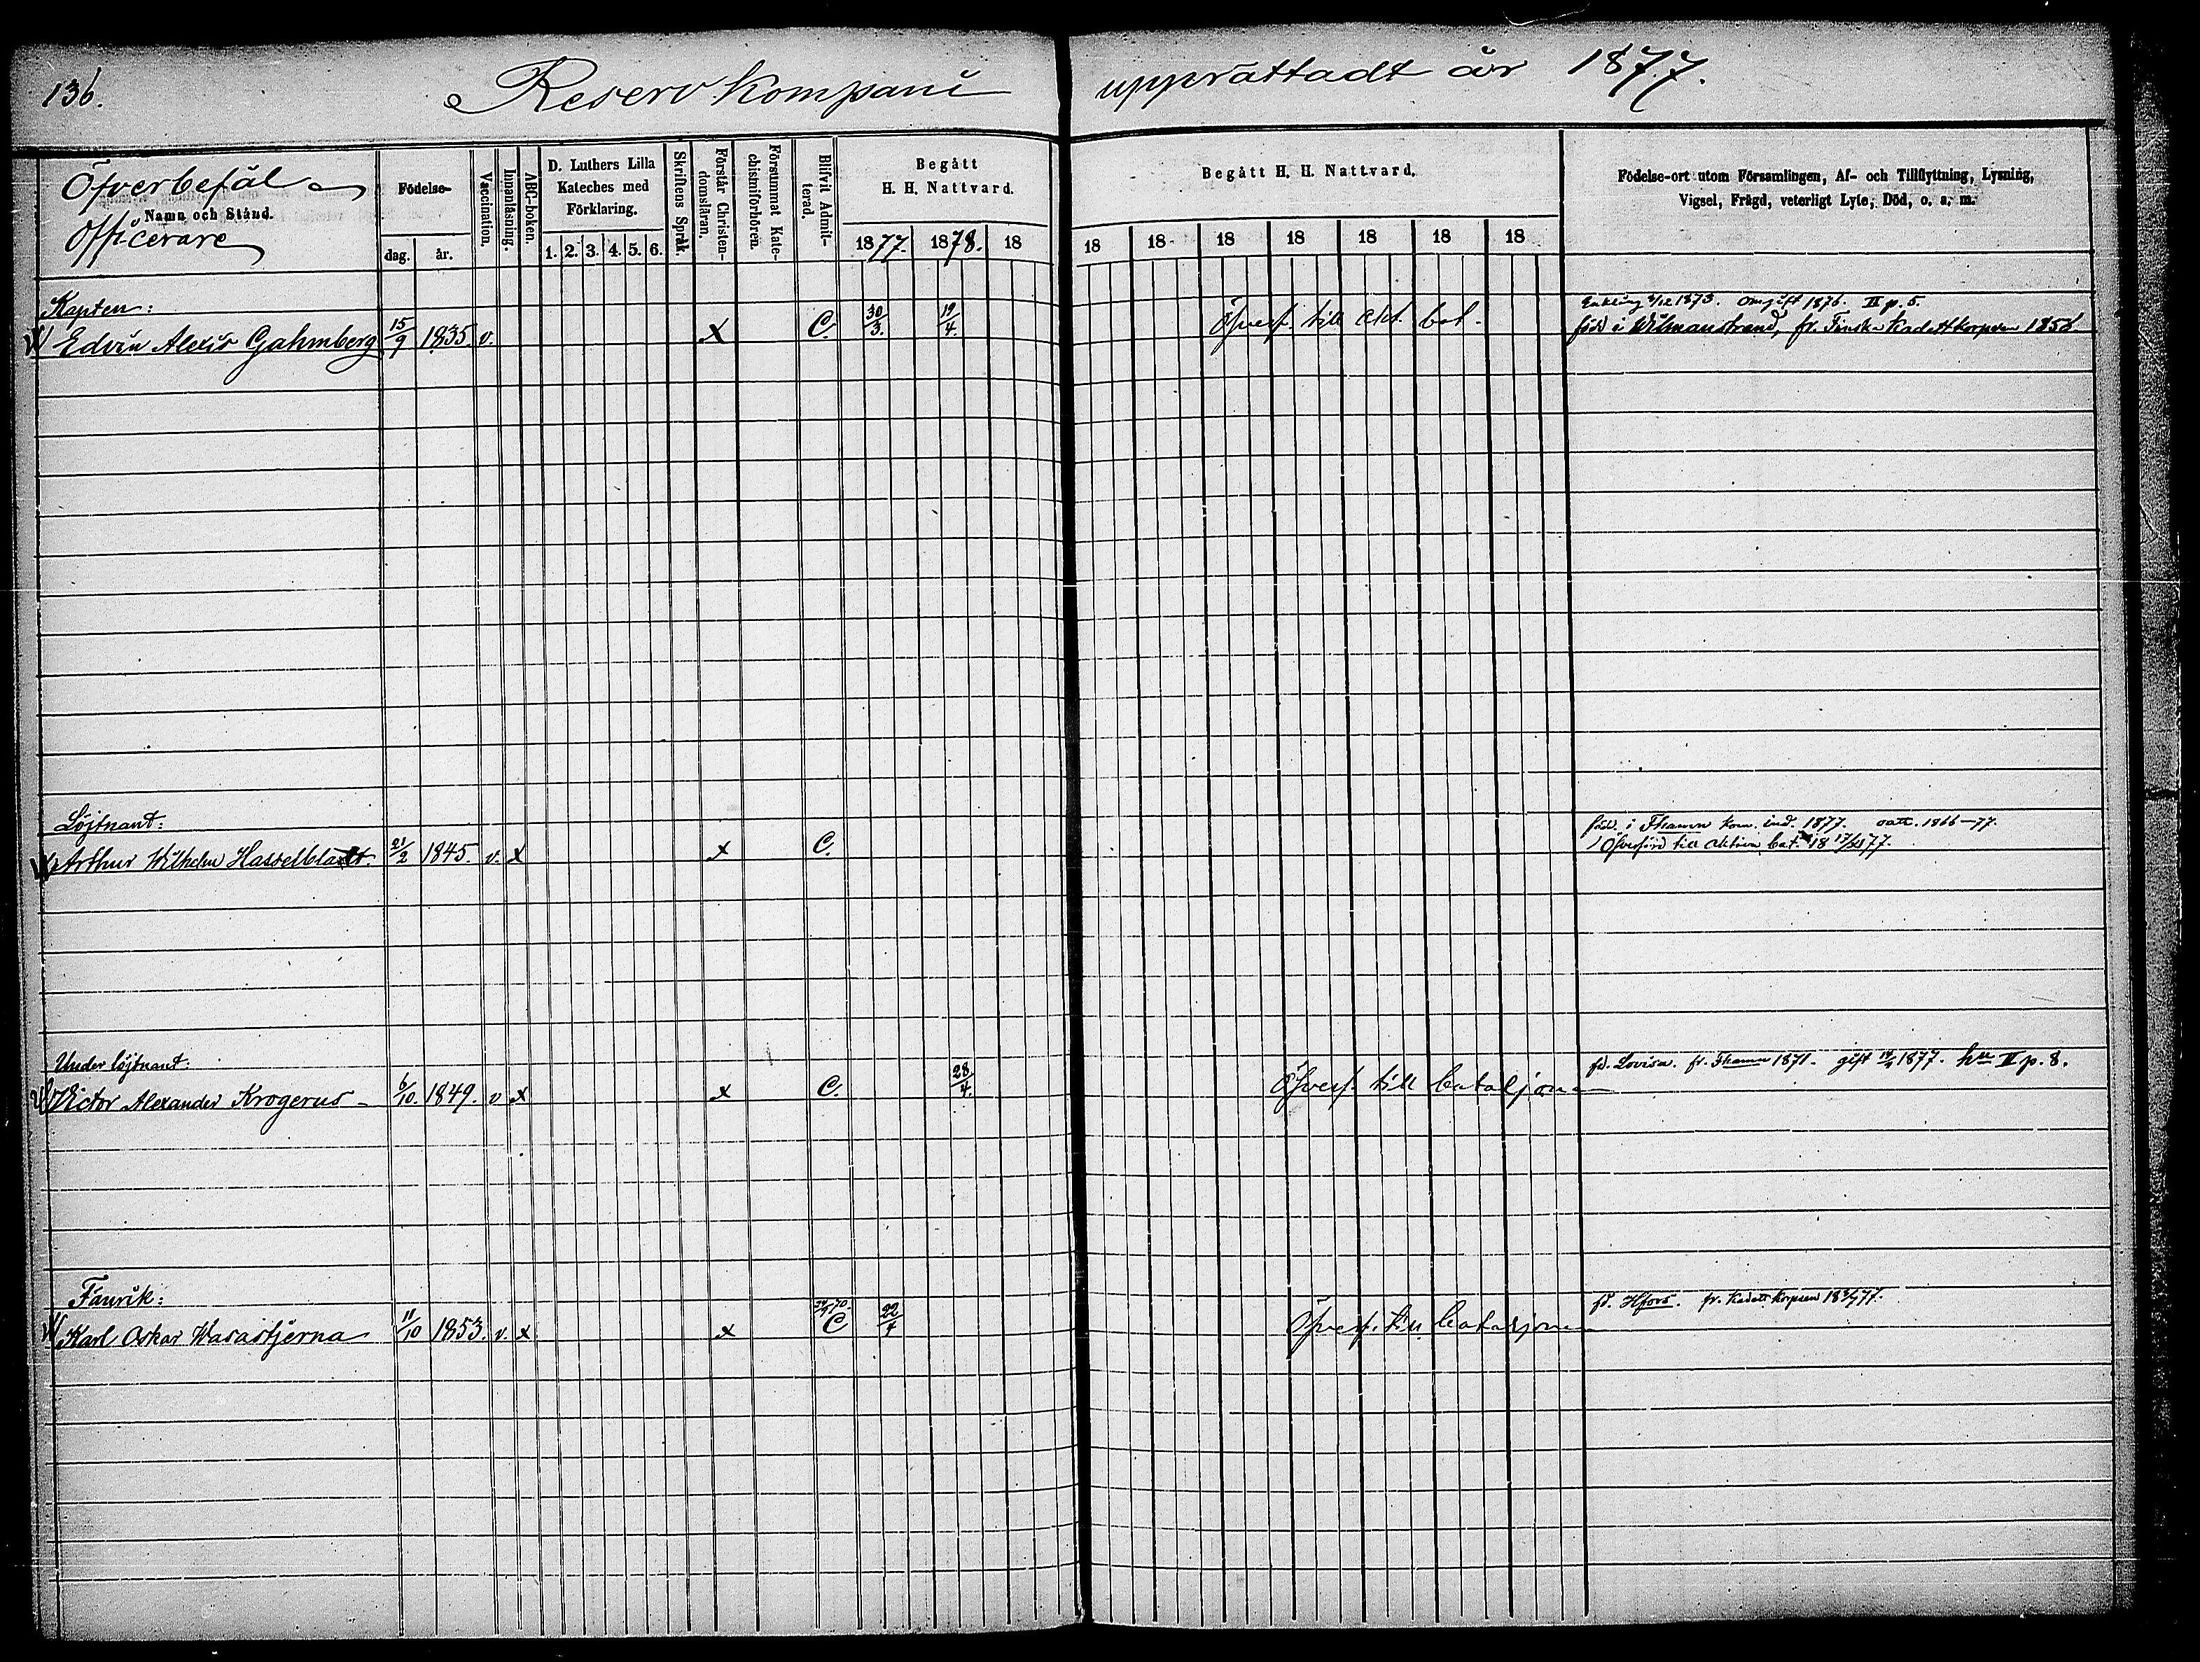 136.
Reservkompani upprättadt år 1877.
Öfverbefäl
Namn och Stånd.
Officerare
Födelse-
dag. år.
Vaccination.
Innanläsning.
ABC-boken.
D. Luthers Lilla
Kateches med
Förklaring.
1. 2. 3. 4. 5. 6.
Skriftens Språk.
Förstår Christen-
domsläran.
Försummat Kate-
chismiförhören.
Blifvit Admit-
terad.
Begått
H. H. Nattvard.
1877. 1878. 18
Begått H. H. Nattvard.
18 18 18 18 18 18 18
Födelse-ort utom Församlingen, Af- och Tillflyttning, Lysning,
Vigsel, Frägd, veterligt Lyte, Död, o. s. m.
Kapten: Enkling 1873. omgift 1876. II p. 5.
Edvin Alexis Gahmberg 15/9 1835. v. x C. 30/3. 19/4. Öfverf. till akt. bat. född i Wilmanstrand, fr. Finska Kadettkorpsen 1856
Löjtnant: född i Fhamn kom. ind. 1877. 1866-77.
Arthur Wilhelm Hasselblatt. 21/2 1845. v. x x C. Öfverförd till aktiva bat.
Under löjtnant: fd. Lovisa. fr. Fhamn 1871. gift 1877. II p. 8.
Victor Alexander Krogerus 6/10. 1849. v x x C. 28/4. Öfverf. till bataljonen
Fänrik: fd. Hfors. fr. Kadettkorpsen
Karl Oskar Wasastjerna 11/10 1853. v. x x C 22/4 Öfverf. till bataljonen